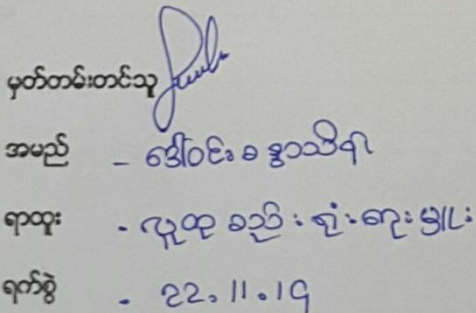 မှတ်တမ်းတင်သူ
အမည် - ဒေါ်ဝင်းစန္ဒာသိန်း
ရာထူး - လူထုစည်းရုံးရေးမှူး
ရက်စွဲ - ၃၃.၁၁.၁၄